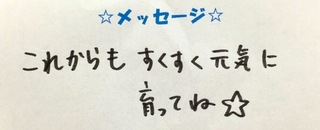 ☆メッセージ☆
これからも すくすく 元気に
育ってね☆